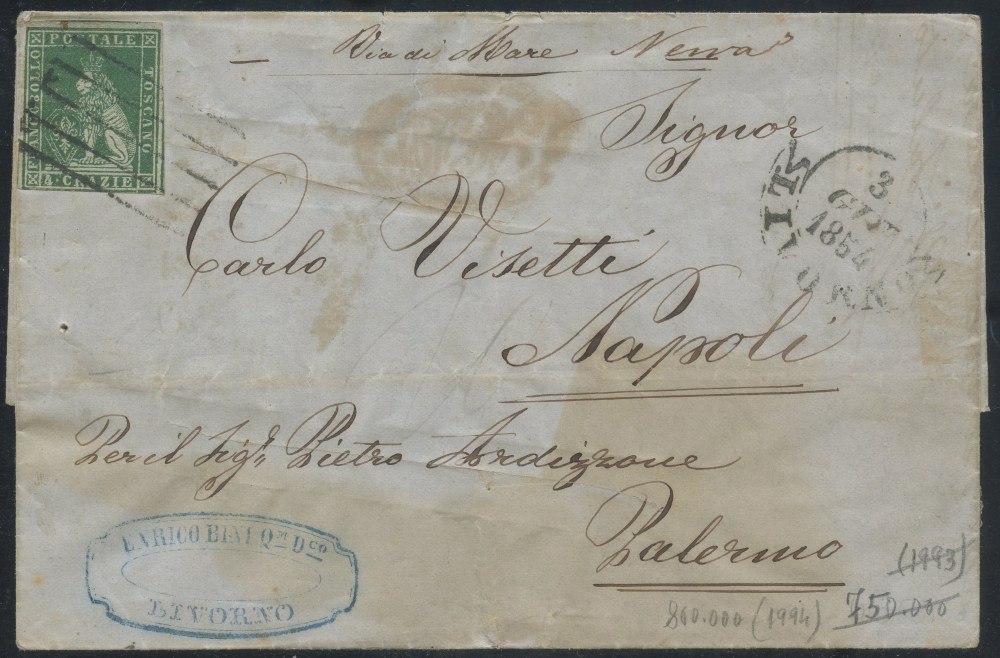 FRANCOBOLLO
POSTALE
TOSCANO
4·CRAZIE
Via di Mare
Signor
Carlo Visetti
Napoli
3
GIU
1854
LIVORNO
Per il Sigr. Pietro Ardizzone
Palermo
ENRICO BINI Qm Dco
LIVORNO
(1993)
800.000 (1994) 750.000